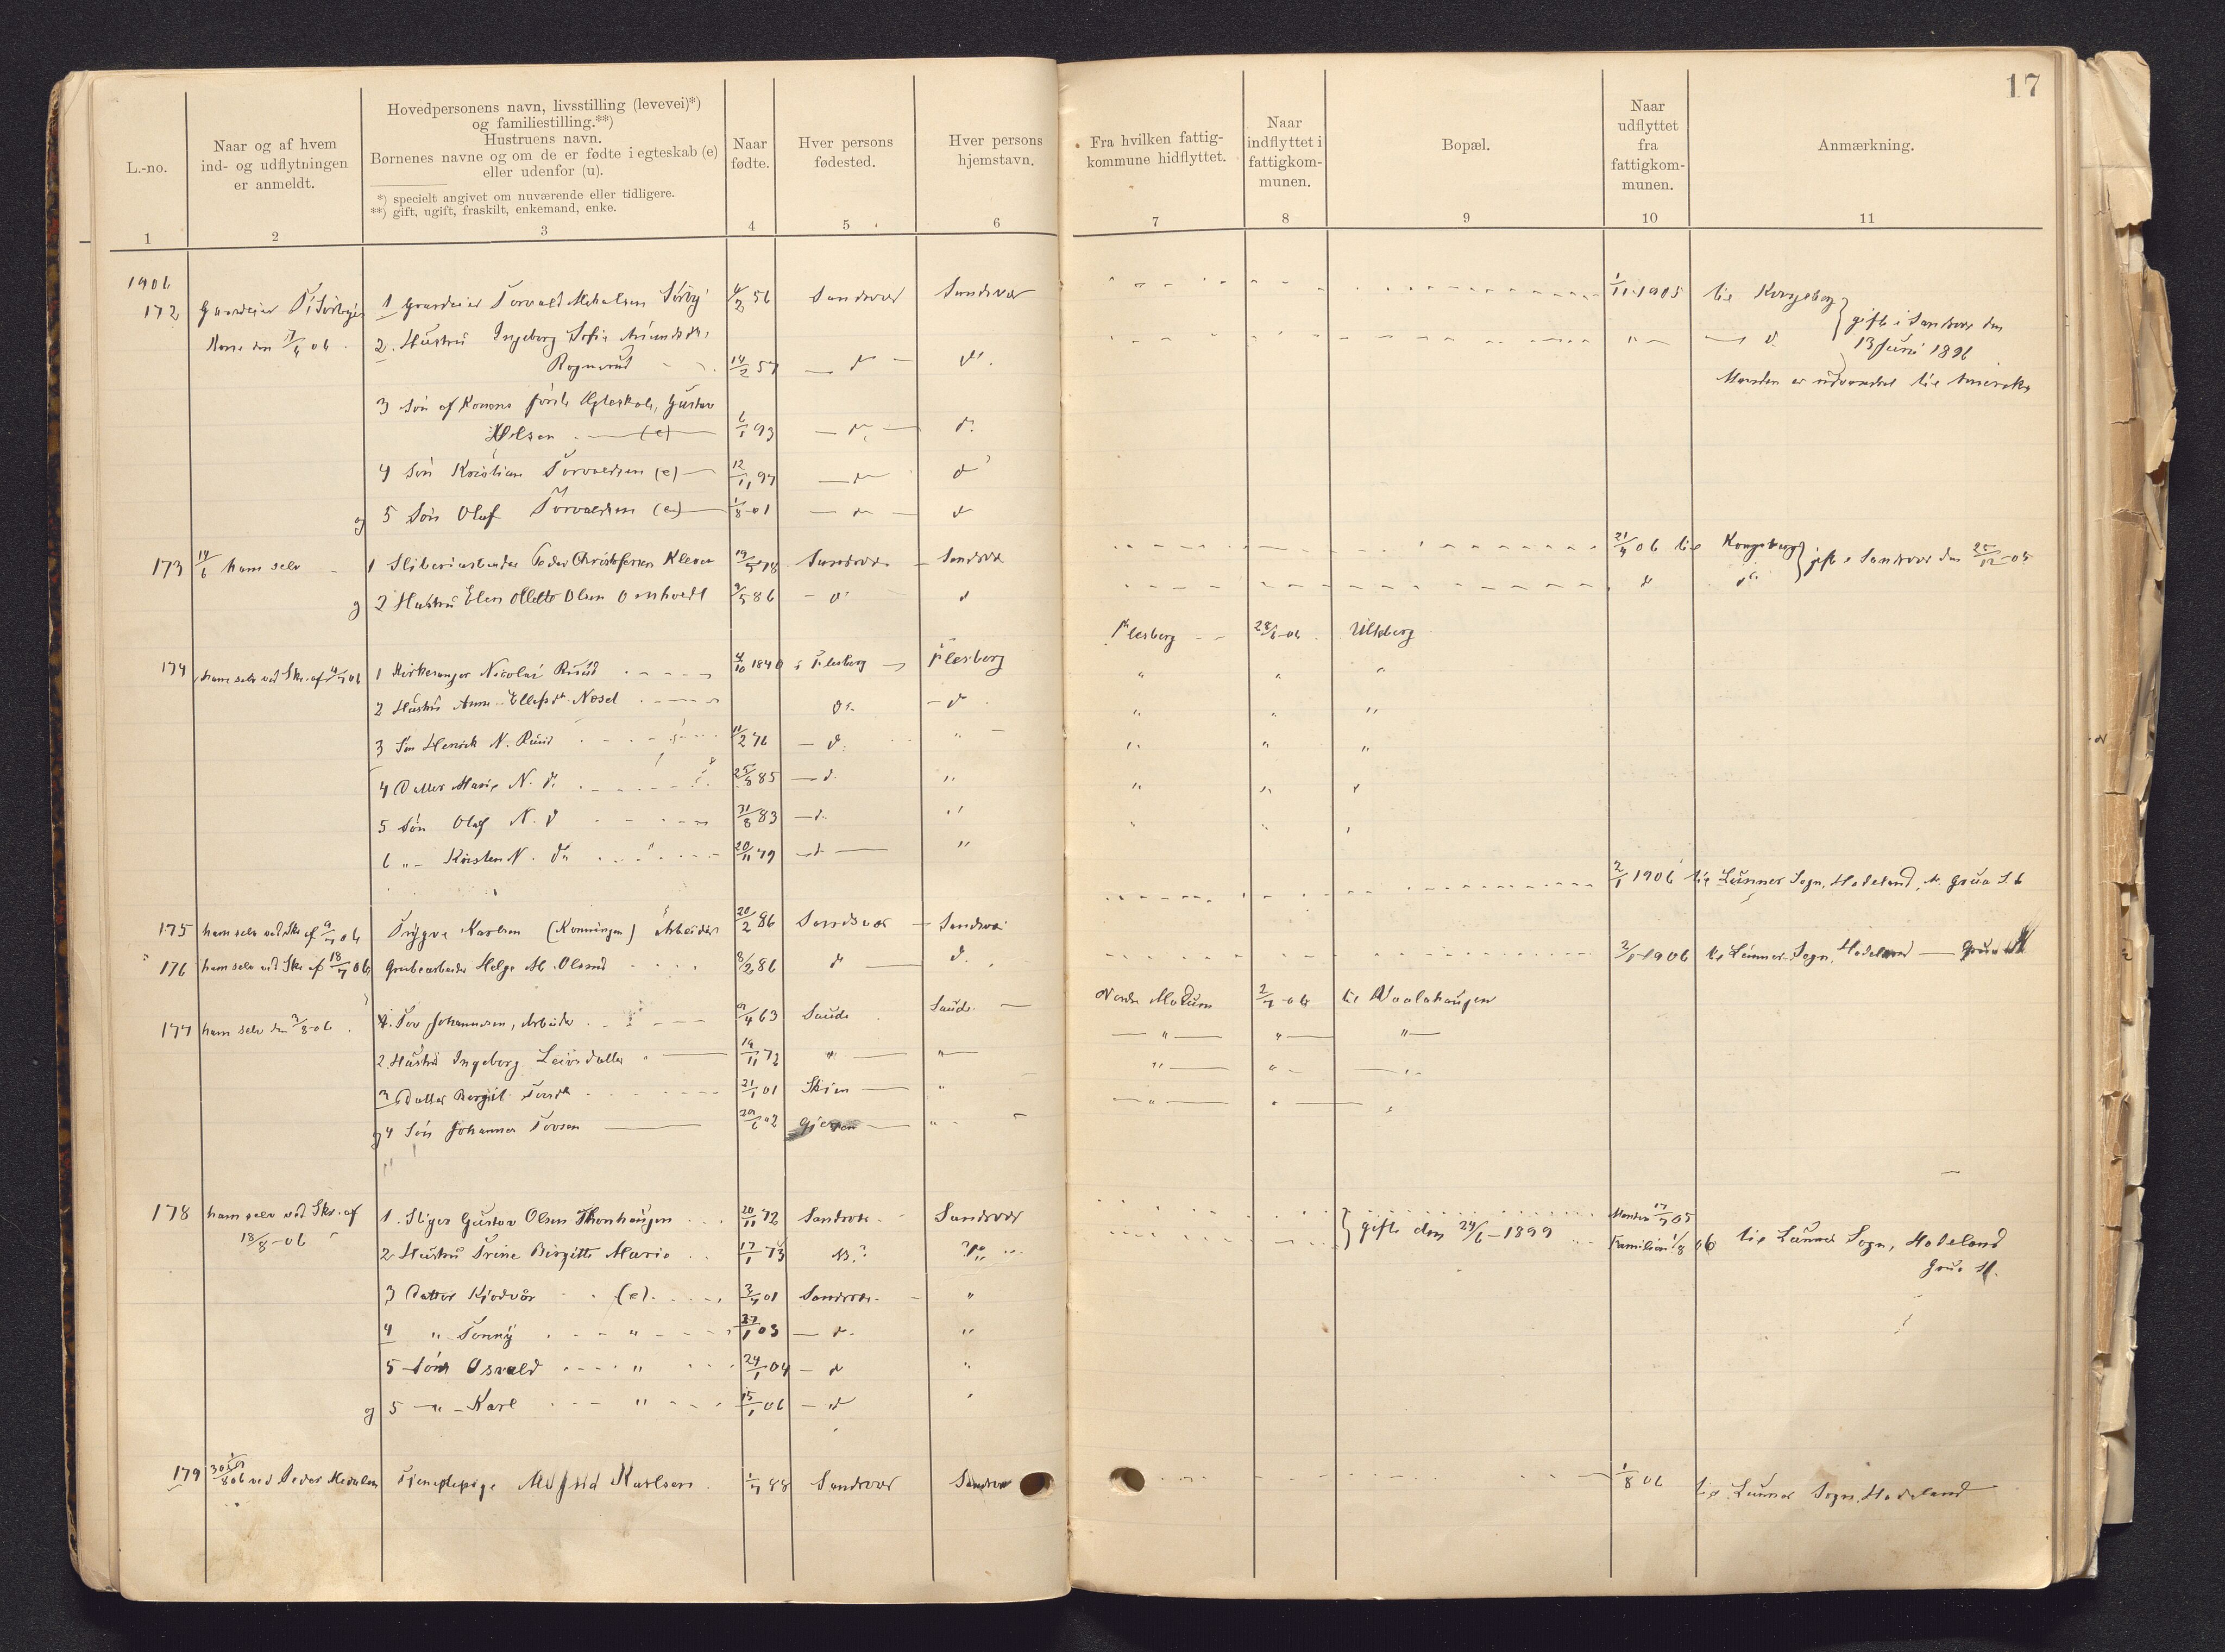 17
L.-no.
Naar og af hvem
ind- og udflytningen
er anmeldt.
Hovedpersonens navn, livsstilling (levevei)*)
og familiestilling.**)
Hustruens navn.
Børnenes navne og om de er fødte i egteskab (e)
eller udenfor (u).
*) specielt angivet om nuværende eller tidligere.
**) gift, ugift, fraskilt, enkemand, enke.
Naar
fødte.
Hver persons
fødested.
Hver persons
hjemstavn.
Fra hvilken fattig-
kommune hidflyttet.
Naar
indflyttet i
fattigkom-
munen.
Bopæl.
Naar
udflyttet
fra
fattigkom-
munen.
Anmærkning.
1 2 3 4 5 6 7 8 9 10 11
1906
172 Gaardeier 1 Gaardeier Torvald Mikalsen Sørby 4/2 56 Sandsvær Sandsvær 1/11 1905 til Kongsberg
Kone den 7/6 06 2. Hustru Ingeborg Sofie " d. gift i Sandsvær den
Rognerud 14/2 57 d d. 13 Juni 1896
Manden er udvandret til Amerika
3 Søn af Konens første Ægteskab, Gustav
(e) 6/1 93 d. d.
4 Søn Kristian Torvaldsen (e) 12/11 97 d d
og 5 Søn Olaf Torvaldsen (e) 1/8 01 d d
173 14/6 ham selv 1 Sliberiarbeider Peder Christofersen Kleven 19/5 78 Sandsvær Sandsvær 21/4 06 til Kongsberg gift i Sandsvær den 25/12 05
og 2 Hustru Elen Olsen Omholt 9/5 86 d d d d
174 ham selv ved Skr. af 4/7 06 1 Kirkesanger Nicolai Ruud 4/10 1840 i Flesberg Flesberg Flesberg 28/6 06 Ulleberg
2 Hustru Anne Næsel d d " " "
3 Søn Henrik N. Ruud 11/2 76 d. " " " "
4 Datter Marie N. d. 25/9 85 d. " " " "
5 Søn Olaf N. d 31/8 83 d. " " " "
6 " Kristen N. d. 20/11 79 d " " " "
175 ham selv ved Skr. af 9/7 06 Trygve Karlsen (Konningen) Arbeider 20/2 86 Sandsvær Sandsvær 2/1 1906 til Lunner Sogn, Hadeland, Grua
176 ham selv ved Skr. af 18/7 06 Grubearbeider Helge M. Olsen 8/2 86 d d. 2/1 1906 til Lunner Sogn, Hadeland Grua
177 ham selv den 3/8 06 1. Tov Johannesen, Arbeider 9/4 63 Saude Saude Nordre Modum 2/7 06
2. Hustru Ingeborg Leivsdatter 19/11 72 " " " " "
3 Datter Bergit Tovsdr 21/1 01 Skien " " " "
og 4 Søn Johannes Tovsen 29/6 02 Gjerpen " " " "
178 ham selv ved Skr. af 1. Stiger Gustav Olsen Thonhaugen 20/11 72 Sandsvær Sandsvær Manden 17/7 05
18/8 06 2 Hustru Trine Birgitte Marie 17/1 73 gift den 24/6 1899 Familien 1/8 06 til Lunner Sogn, Hadeland
Grua
3 Datter Kjødvør (e) 3/7 01 Sandsvær "
4 " Tonny " 27/1 03 d. "
5 Søn Osvald " 24/1 04 d "
og 5 " Karl " 15/1 06 d
179 ved Peder Tjenestepige Karlsen 1/7 88 Sandsvær Sandsvær 1/8 06 til Lunner Sogn, Hadeland